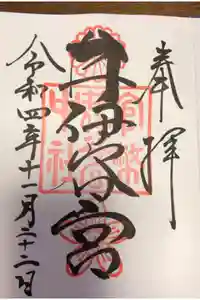 奉拝
官幣
井伊谷宮
中社
令和四年十一月二十二日